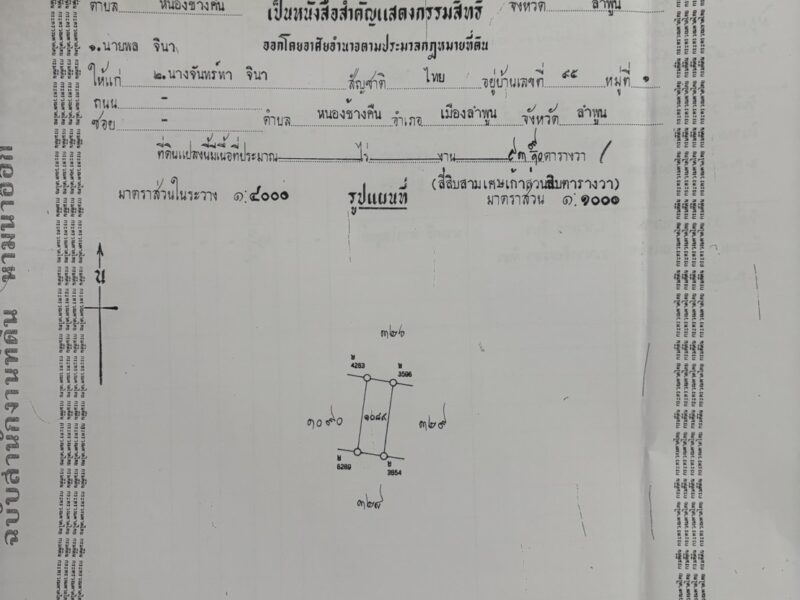 ตำบล หนองช้างคืน เป็นหนังสือสำคัญแสดงกรรมสิทธิ์ จังหวัด ลำพูน
๑.นายพล จินา ออกโดยอาศัยอำนาจตามประมวลกฎหมายที่ดิน
ให้แก่ ๒.นางจันทร์ทา จินา สัญชาติ ไทย อยู่บ้านเลขที่ ๙๕ หมู่ที่ ๑
ถนน -
ซอย - ตำบล หนองช้างคืน อำเภอ เมืองลำพูน จังหวัด ลำพูน
ที่ดินแปลงนี้มีเนื้อที่ประมาณ ไร่ งาน ตารางวา
(สี่สิบสามเศษเก้าส่วนสิบตารางวา)
มาตราส่วนในระวาง ๑:๔๐๐๐ รูปแผนที่ มาตราส่วน ๑:๑๐๐๐
น
๓๒๖
ข 4283 ข 3596
๓๐๙๐ ๓๒๙
ข 3854
๓๒๘
ฉบับสำนักงานที่ดิน ห้ามนำออก